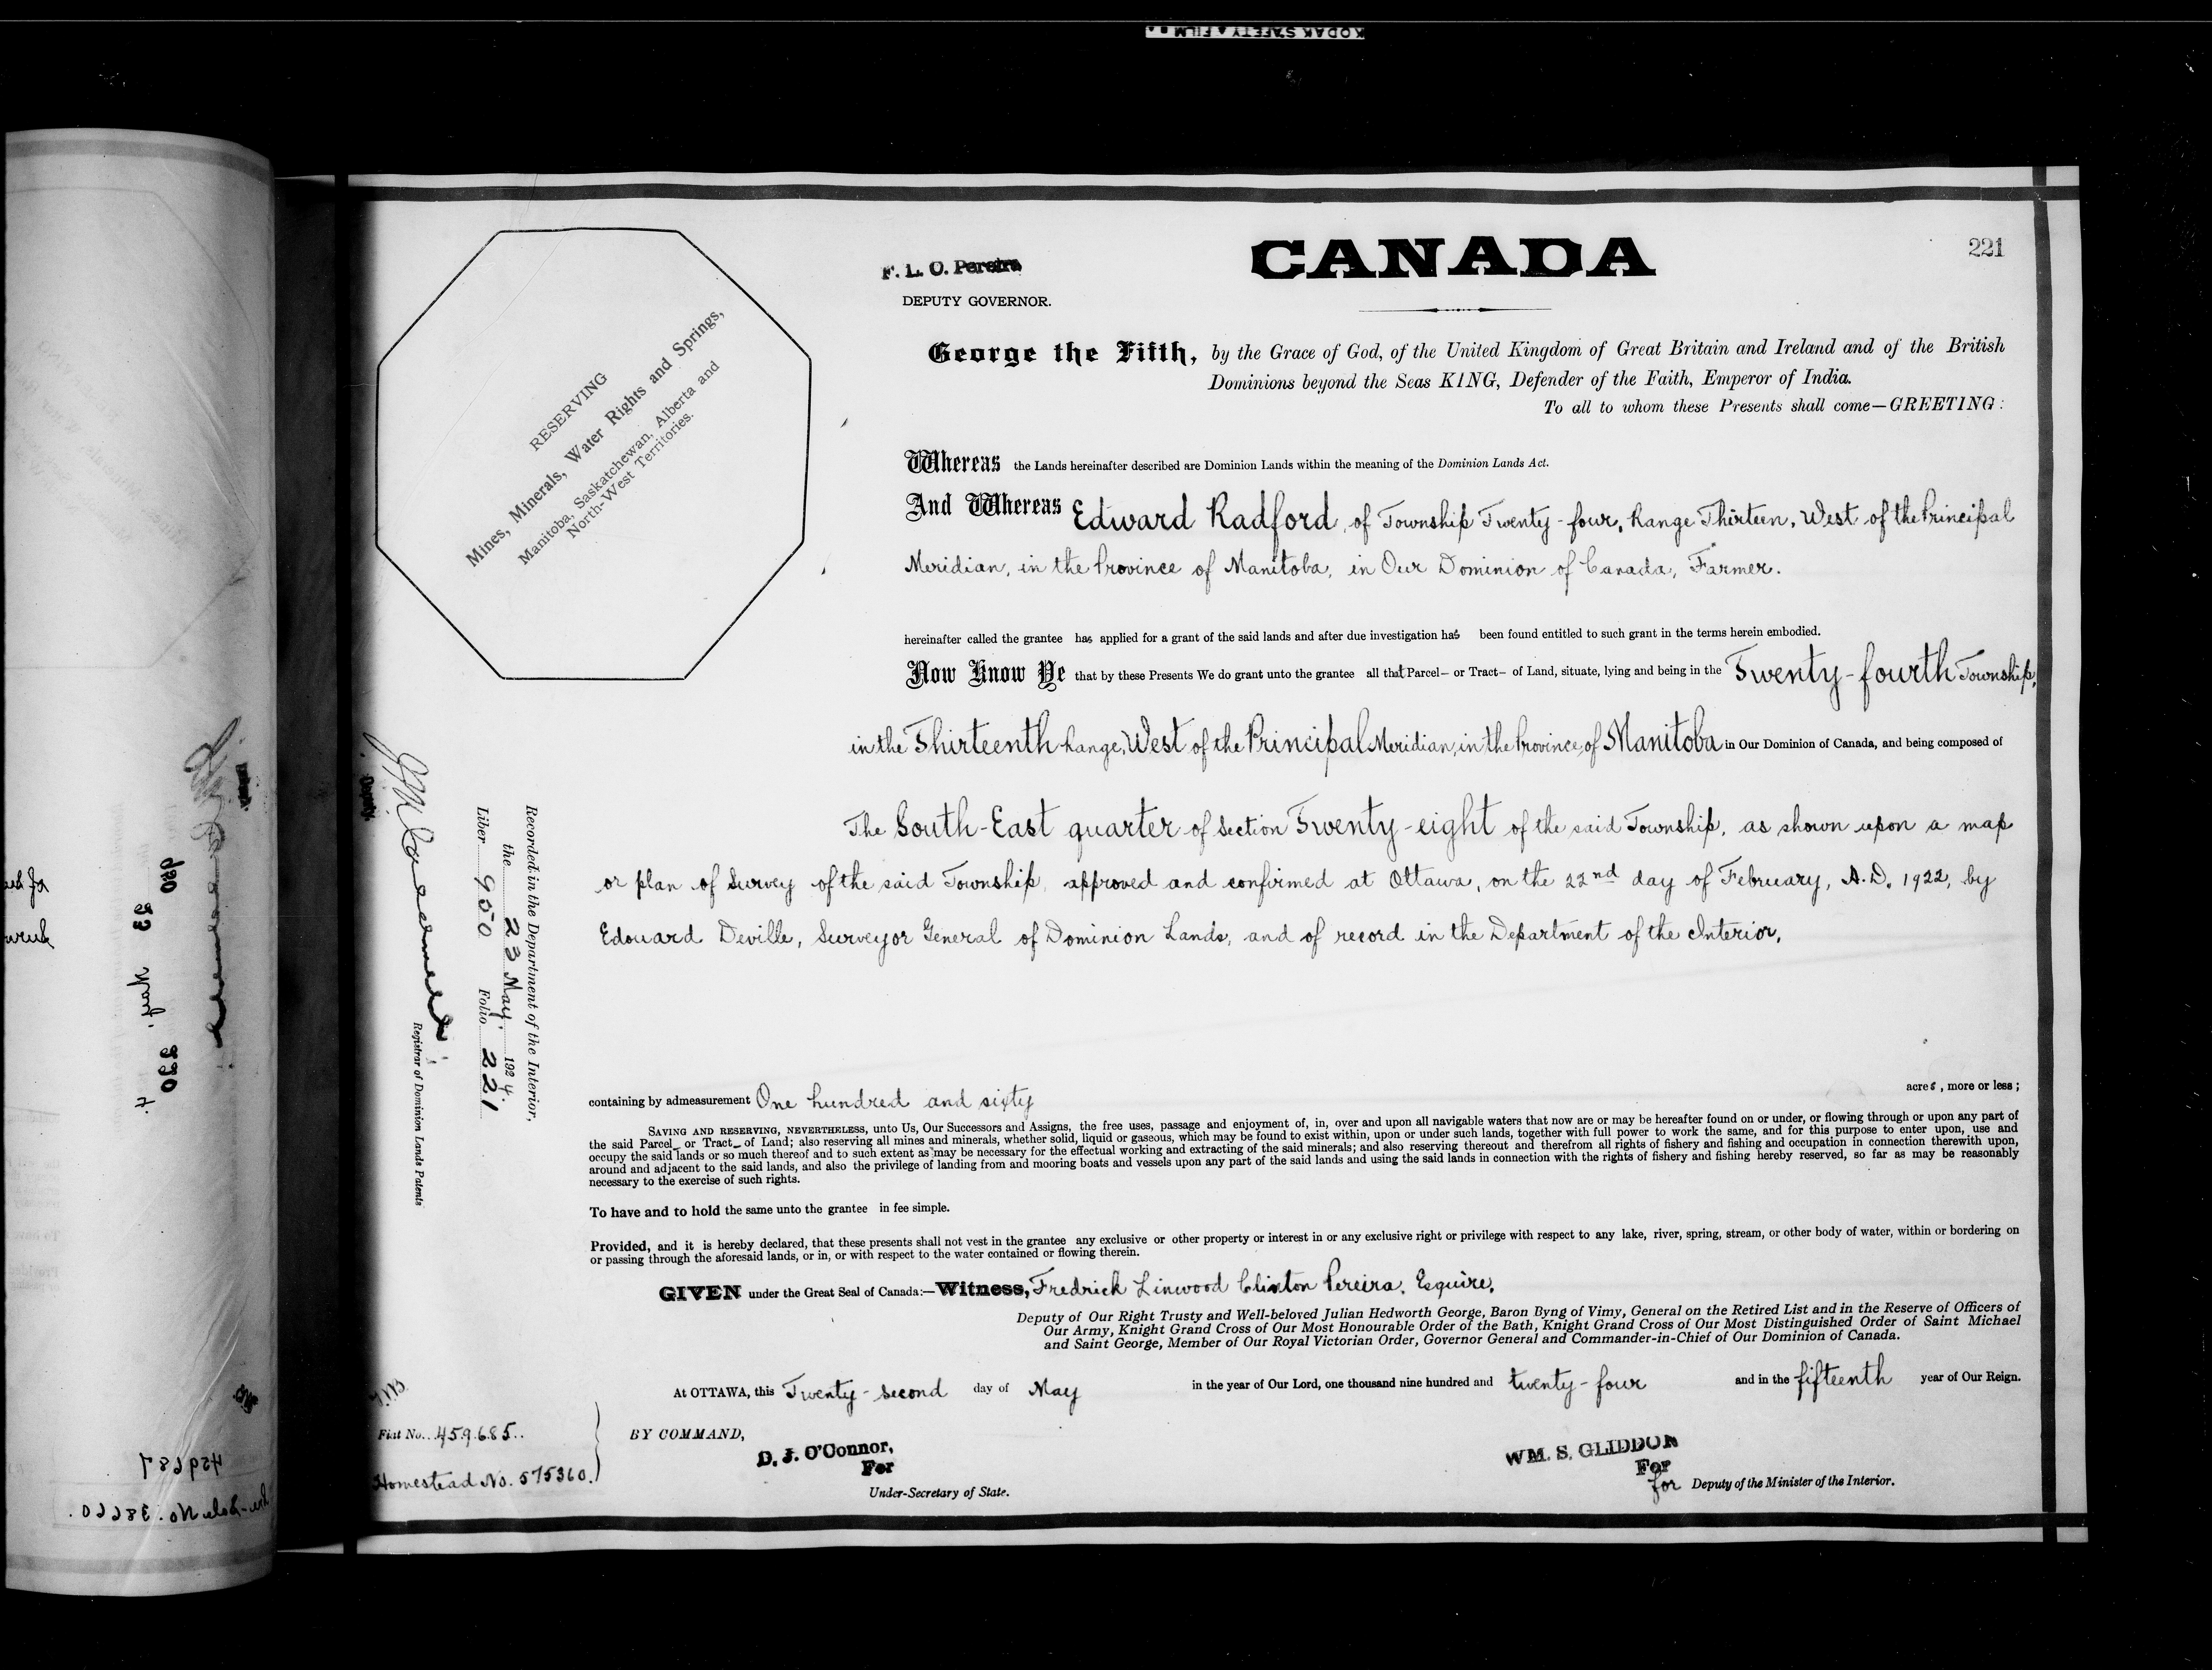 KODAK SAFETY FILM
221
CANADA
F. L. O. Pereira
DEPUTY GOVERNOR.
RESERVING
Mines, Minerals, Water Rights and Springs,
Manitoba, Saskatchewan, Alberta and
North-West Territories.
George the Fifth, by the Grace of God, of the United Kingdom of Great Britain and Ireland and of the British
Dominions beyond the Seas KING, Defender of the Faith, Emperor of India.
To all to whom these Presents shall come—GREETING:
Whereas the Lands hereinafter described are Dominion Lands within the meaning of the Dominion Lands Act.
And Whereas Edward Radford, of Township Twenty-four, Range Thirteen, West of the Principal
Meridian, in the Province of Manitoba, in Our Dominion of Canada, Farmer.
hereinafter called the grantee has applied for a grant of the said lands and after due investigation has been found entitled to such grant in the terms herein embodied.
Now Know Ye that by these Presents We do grant unto the grantee all that Parcel— or Tract— of Land, situate, lying and being in the Twenty-fourth Township,
in the Thirteenth Range, West of the Principal Meridian, in the Province of Manitoba in Our Dominion of Canada, and being composed of
The South-East quarter of Section Twenty-eight of the said Township, as shown upon a map
or plan of Survey of the said Township, approved and confirmed at Ottawa, on the 22nd day of February, A.D. 1922, by
Edouard Deville, Surveyor General of Dominion Lands, and of record in the Department of the Interior.
containing by admeasurement One hundred and sixty acres, more or less;
SAVING AND RESERVING, NEVERTHELESS, unto Us, Our Successors and Assigns, the free uses, passage and enjoyment of, in, over and upon all navigable waters that now are or may be hereafter found on or under, or flowing through or upon any part of
the said Parcel— or Tract— of Land; also reserving all mines and minerals, whether solid, liquid or gaseous, which may be found to exist within, upon or under such lands, together with full power to work the same, and for this purpose to enter upon, use and
occupy the said lands or so much thereof and to such extent as may be necessary for the effectual working and extracting of the said minerals; and also reserving thereout and therefrom all rights of fishery and fishing and occupation in connection therewith upon,
around and adjacent to the said lands, and also the privilege of landing from and mooring boats and vessels upon any part of the said lands and using the said lands in connection with the rights of fishery and fishing hereby reserved, so far as may be reasonably
necessary to the exercise of such rights.
To have and to hold the same unto the grantee in fee simple.
Provided, and it is hereby declared, that these presents shall not vest in the grantee any exclusive or other property or interest in or any exclusive right or privilege with respect to any lake, river, spring, stream, or other body of water, within or bordering on
or passing through the aforesaid lands, or in, or with respect to the water contained or flowing therein.
GIVEN under the Great Seal of Canada:—Witness, Fredrick Linwood Clinton Pereira, Esquire,
Deputy of Our Right Trusty and Well-beloved Julian Hedworth George, Baron Byng of Vimy, General on the Retired List and in the Reserve of Officers of
Our Army, Knight Grand Cross of Our Most Honourable Order of the Bath, Knight Grand Cross of Our Most Distinguished Order of Saint Michael
and Saint George, Member of Our Royal Victorian Order, Governor General and Commander-in-Chief of Our Dominion of Canada.
At OTTAWA, this Twenty-second day of May in the year of Our Lord, one thousand nine hundred and twenty-four and in the fifteenth year of Our Reign.
BY COMMAND,
D. J. O'Connor,
For
Under-Secretary of State.
WM. S. GLIDDON
For
for Deputy of the Minister of the Interior.
Recorded in the Department of the Interior,
the 23 May, 1924.
Liber 950 Folio 221
Deputy
Registrar of Dominion Lands Patents
Fiat No. 459685
Homestead No. 575360.
950
23 May
220
459687
No. 38220.